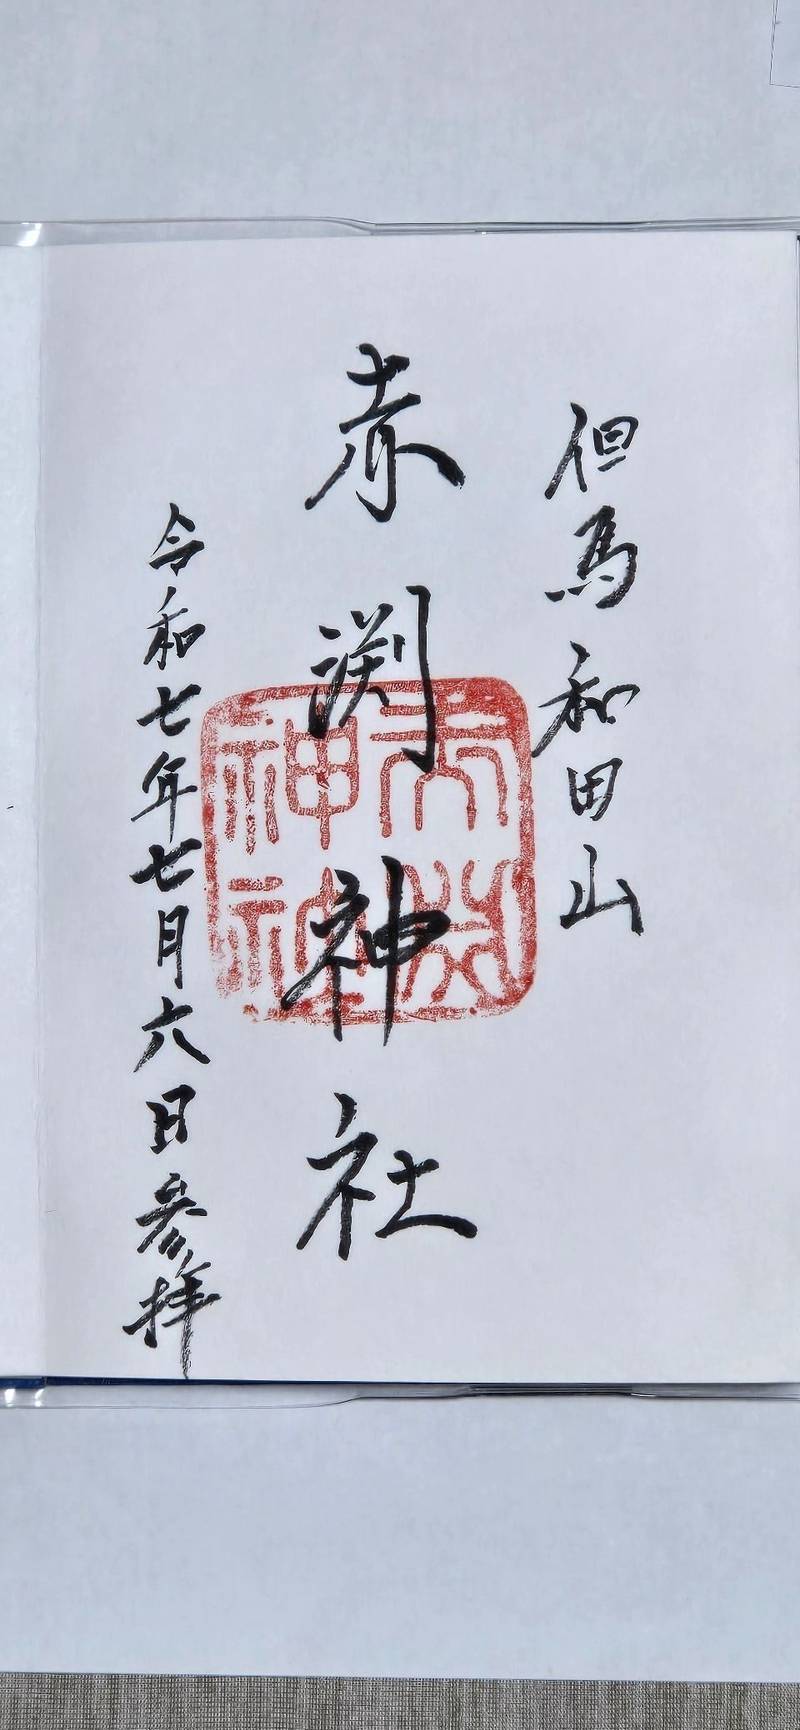 但馬和田山
赤渕神社
令和七年七月六日参拝